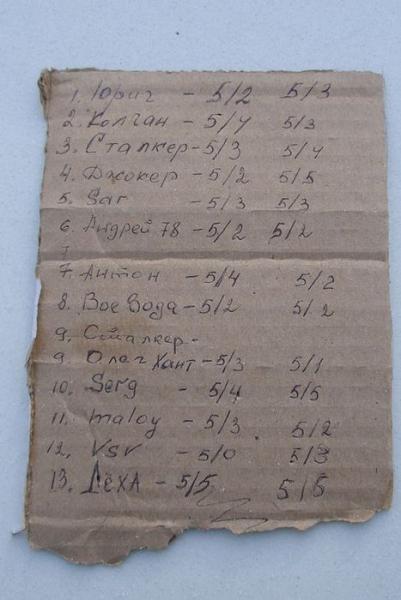 1. Юрич - 5/2 5/3
2. Колган - 5/4 5/3
3. Сталкер - 5/3 5/4
4. Джокер - 5/2 5/5
5. Sar - 5/3 5/3
6. Андрей 78 - 5/2 5/2
7
7. Антон - 5/4 5/2
8. Воевода - 5/2 5/2
9. Сталкер -
9. Олег Хант - 5/3 5/1
10. Serg - 5/4 5/5
11. maloy - 5/3 5/2
12. VSV - 5/0 5/3
13. Леха - 5/5 5/5